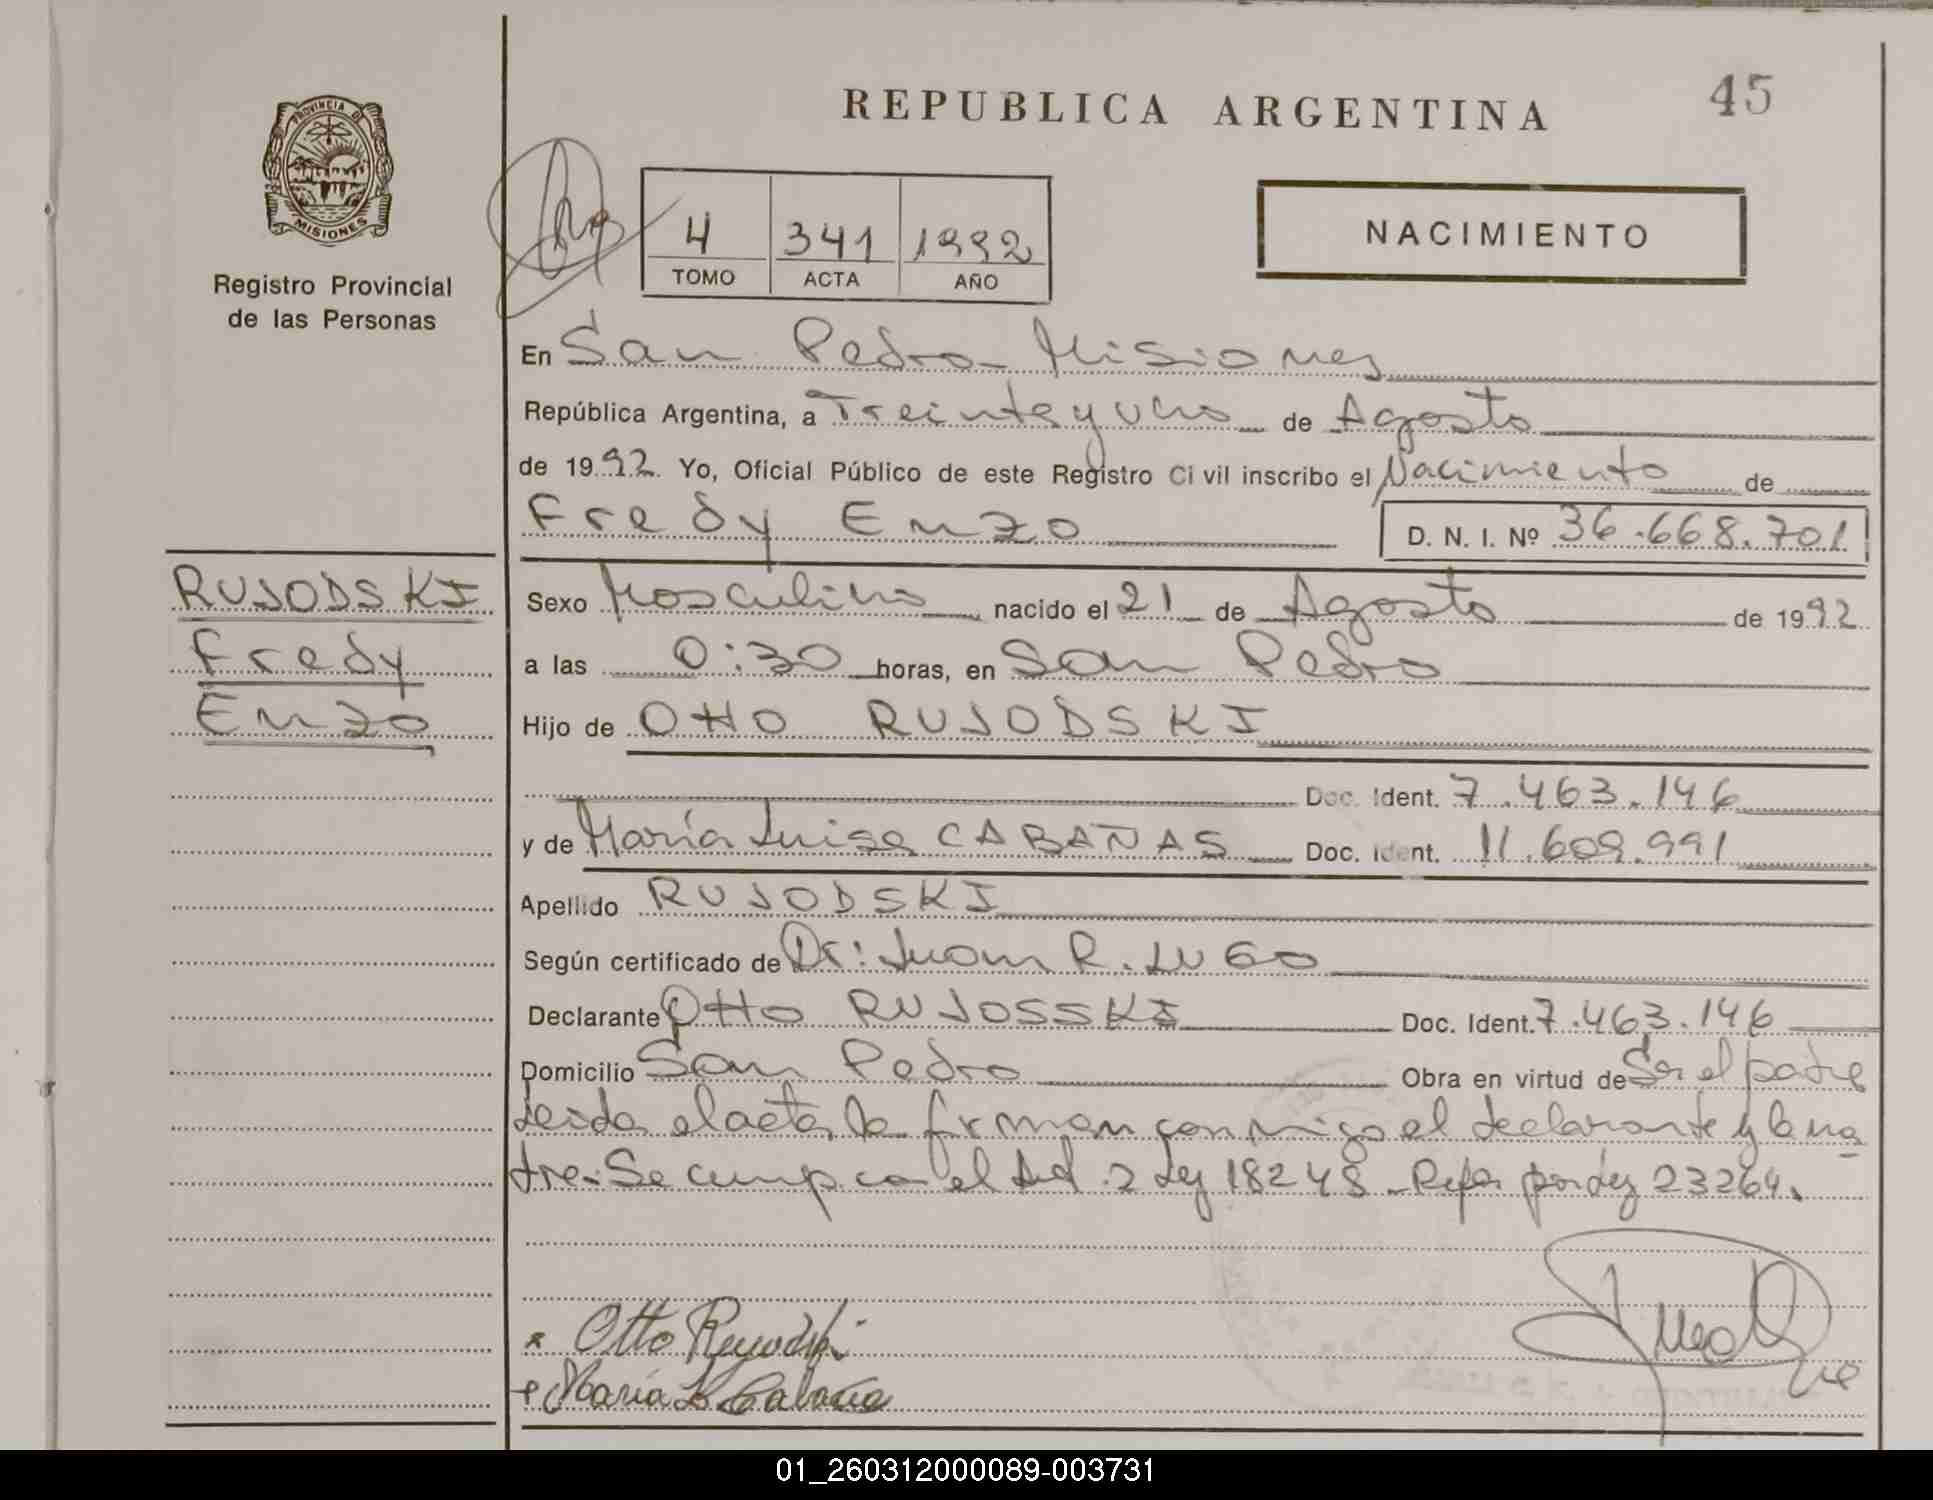 REPUBLICA ARGENTINA
45
PROVINCIA DE
MISIONES
Registro Provincial
de las Personas
4 341 1992
TOMO ACTA AÑO
NACIMIENTO
En San Pedro - Misiones
República Argentina, a Treinta y uno de Agosto
de 1992. Yo, Oficial Público de este Registro Civil inscribo el Nacimiento de
Fredy Enzo D. N. I. Nº 36.668.701
RUJODSKI
Fredy
Enzo
Sexo Masculino nacido el 21 de Agosto de 1992
a las 0:30 horas, en San Pedro
Hijo de Otto RUJODSKI
Doc. Ident. 7.463.146
y de María Luisa CABAÑAS Doc. Ident. 11.609.991
Apellido RUJODSKI
Según certificado de Dr: Juan R. LUGO
Declarante Otto RUJOSSKI Doc. Ident. 7.463.146
Domicilio San Pedro Obra en virtud de Ser el padre
Leida el acta la firman conmigo el declarante y la ma
dre. Se cump con el Art. 2 Ley 18248 - Refor por Ley 23264.
Otto Ruyodski
María L. Cabaña
01_260312000089-003731